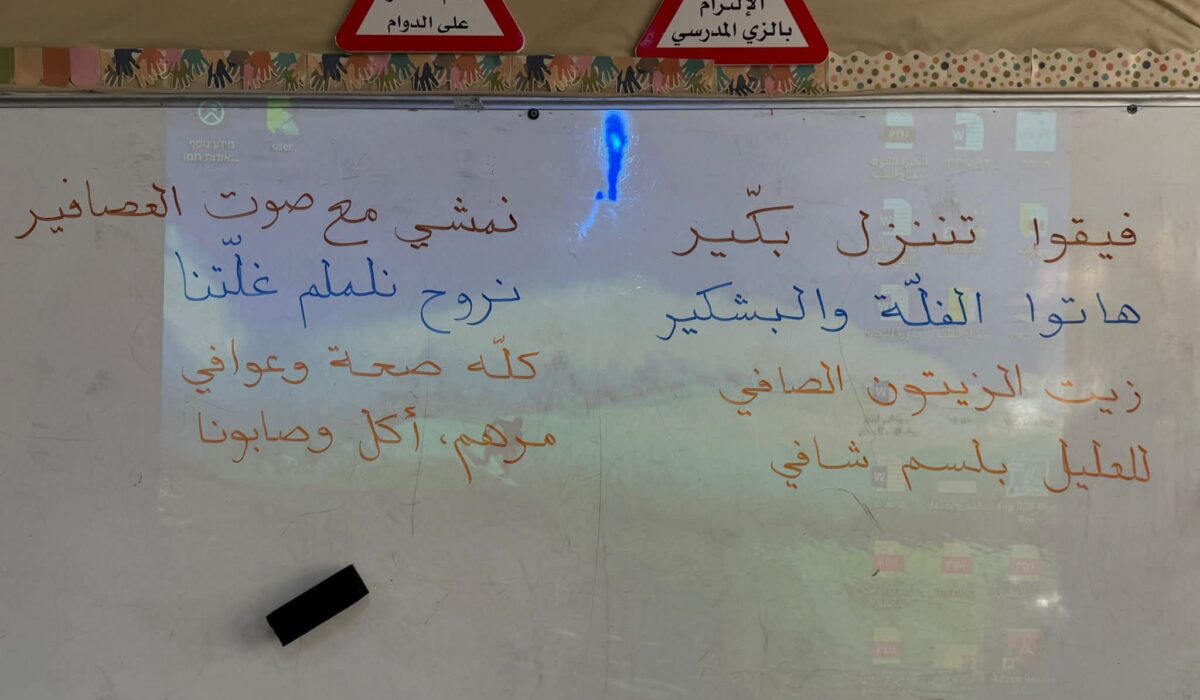 على الدوام
الإلتزام
بالزي المدرسي
user
מידע נוסף
PDF
W
فيقوا تننزل بكّير نمشي مع صوت العصافير
هاتوا الفلّة والبشكير نروح نلملم غلّتنا
زيت الزيتون الصافي كلّه صحة وعوافي
للعليل بلسم شافي مرهم، أكل وصابونا
PDF PDF PDF
PDF